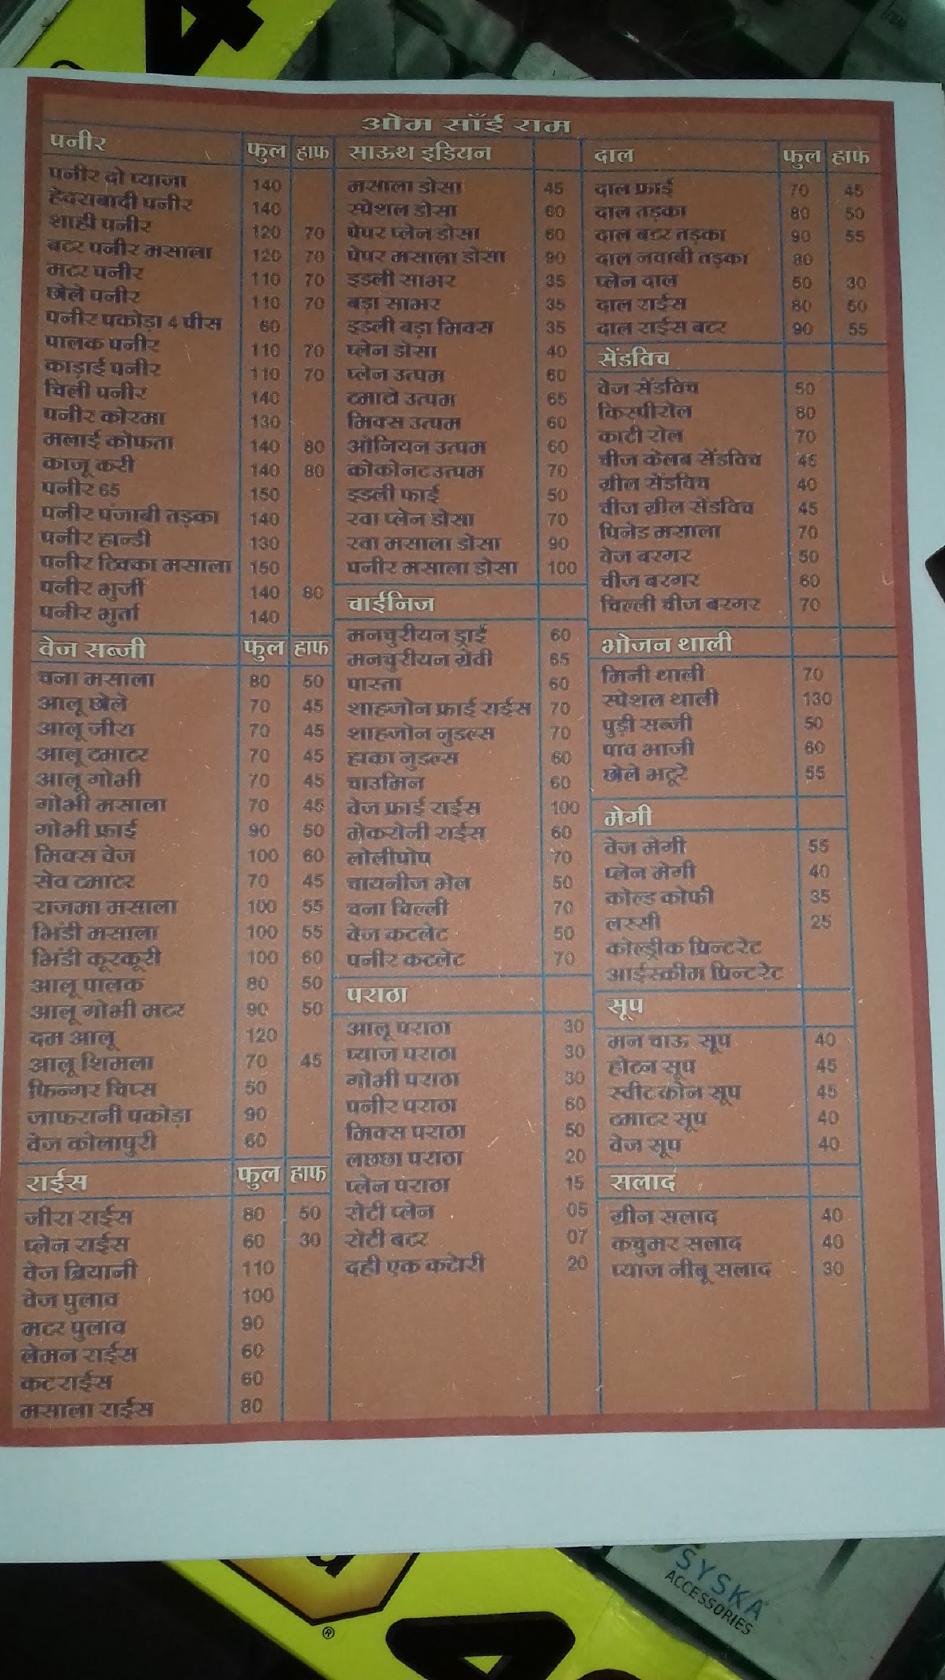 4
ओम साँई राम
पनीर फुल हाफ
पनीर दो प्याजा 140
हेदराबादी पनीर 140
शाही पनीर 120 70
बटर पनीर मसाला 120 70
मटर पनीर 110 70
छोले पनीर 110 70
पनीर पकोड़ा 4 पीस 60
पालक पनीर 110 70
काड़ाई पनीर 110 70
चिली पनीर 140
पनीर कोरमा 130
मलाई कोफता 140 80
काजू करी 140 80
पनीर 65 150
पनीर पंजाबी तड़का 140
पनीर हान्डी 130
पनीर टिक्का मसाला 150
पनीर भुर्जी 140 80
पनीर भुर्ता 140
वेज सब्जी फुल हाफ
चना मसाला 80 50
आलू छोले 70 45
आलू जीरा 70 45
आलू टमाटर 70 45
आलू गोभी 70 45
गोभी मसाला 70 45
गोभी फ्राई 90 50
मिक्स वेज 100 60
सेव टमाटर 70 45
राजमा मसाला 100 55
भिंडी मसाला 100 55
भिंडी कूरकूरी 100 60
आलू पालक 80 50
आलू गोभी मटर 90 50
दम आलू 120
आलू शिमला 70 45
फिन्गर चिप्स 50
जाफरानी पकोड़ा 90
वेज कोलापुरी 60
राईस फुल हाफ
जीरा राईस 80 50
प्लेन राईस 60 30
वेज ब्रियानी 110
वेज पुलाव 100
मटर पुलाव 90
लेमन राईस 60
कटराईस 60
मसाला राईस 80
साऊथ इडियन
मसाला डोसा 45
स्पेशल डोसा 60
पेपर प्लेन डोसा 60
पेपर मसाला डोसा 90
इडली साभर 35
बड़ा साभर 35
इडली बड़ा मिक्स 35
प्लेन डोसा 40
प्लेन उत्पम 60
टमाटो उत्पम 65
मिक्स उत्पम 60
ऑनियन उत्पम 60
कोकोनट उत्पम 70
इडली फाई 50
रवा प्लेन डोसा 70
रवा मसाला डोसा 90
पनीर मसाला डोसा 100
चाईनिज
मनचुरीयन ड्राई 60
मनचुरीयन ग्रेवी 65
पास्ता 60
शाहजोन फ्राई राईस 70
शाहजोन नुडल्स 70
हाका नुडल्स 60
चाउमिन 60
वेज फ्राई राईस 100
मेकरोनी राईस 60
लोलीपोप 70
चायनीज भेल 50
चना चिल्ली 70
वेज कटलेट 50
पनीर कटलेट 70
पराठा
आलू पराठा 30
प्याज पराठा 30
गोभी पराठा 30
पनीर पराठा 60
मिक्स पराठा 50
लछछा पराठा 20
प्लेन पराठा 15
रोटी प्लेन 05
रोटी बटर 07
दही एक कटोरी 20
दाल फुल हाफ
दाल फ्राई 70 45
दाल तड़का 80 50
दाल बटर तड़का 90 55
दाल नवाबी तड़का 80
प्लेन दाल 50 30
दाल राईस 80 50
दाल राईस बटर 90 55
सेंडविच
वेज सेंडविच 50
किस्पीरोल 80
काटी रोल 70
चीज केलब सेंडविच 45
ग्रील सेंडविच 40
चीज ग्रील सेंडविच 45
पिनेड मसाला 70
वेज बरगर 50
चीज बरगर 60
चिल्ली चीज बरगर 70
भोजन थाली
मिनी थाली 70
स्पेशल थाली 130
पुड़ी सब्जी 50
पाव भाजी 60
छोले भटूरे 55
मेगी
वेज मेगी 55
प्लेन मेगी 40
कोल्ड कोफी 35
लस्सी 25
कोल्ड्रीक प्रिन्टरेट
आईस्क्रीम प्रिन्टरेट
सूप
मन चाऊ सूप 40
होटन सूप 45
स्वीटकोन सूप 45
टमाटर सूप 40
वेज सूप 40
सलाद
ग्रीन सलाद 40
कचुमर सलाद 40
प्याज नीबू सलाद 30
SYSKA
ACCESSORIES
®